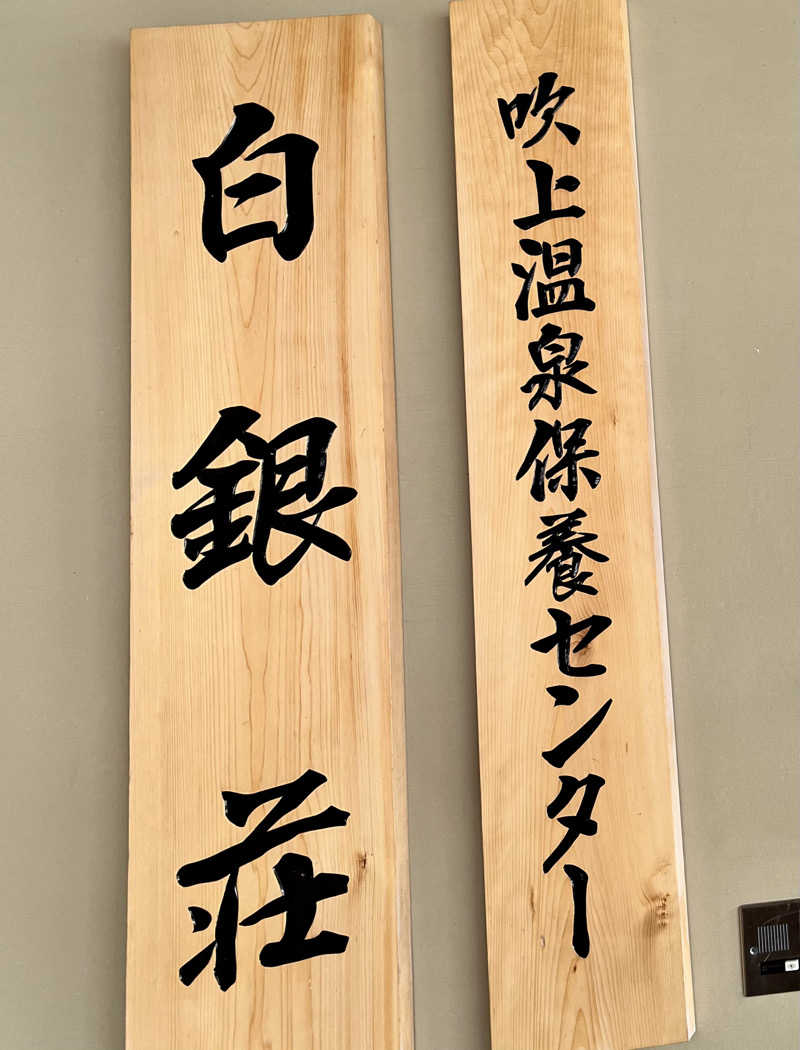 吹上温泉保養センター
白銀荘